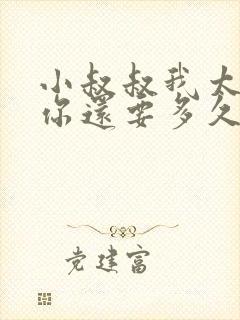 小叔叔我太
你還要多久
党建富